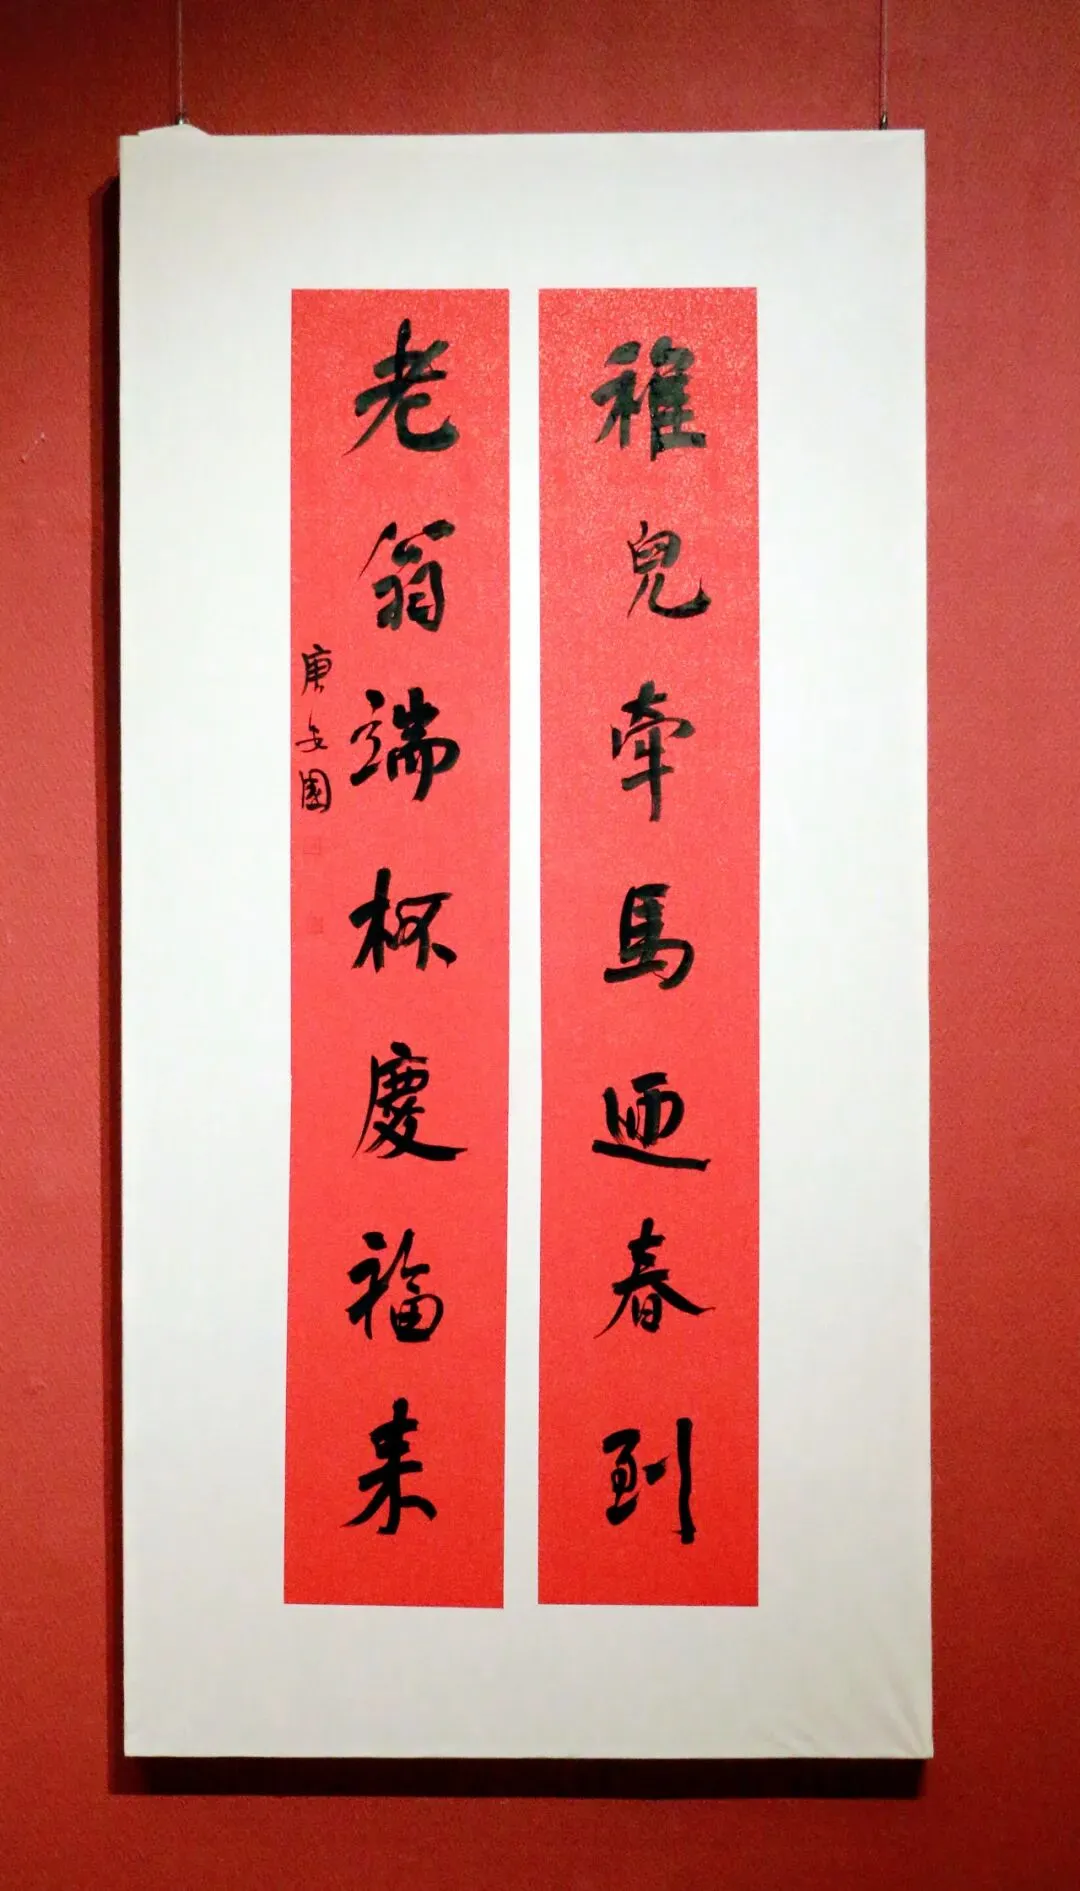 稚兒牽馬迎春到
老翁端杯慶福来
國